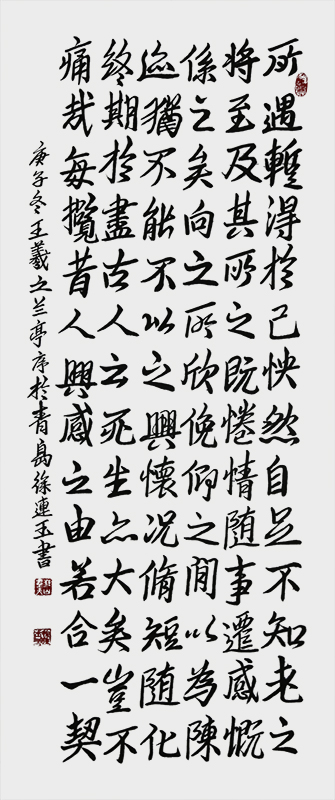 所遇蹔得於己怏然自足不知老之
将至及其所之既惓情随事遷感慨
係之矣向之所欣俛仰之間以為陳
迹猶不能不以之興懷况脩短随化
終期於盡古人云死生亦大矣豈不
痛哉每攬昔人興感之由若合一契
庚子冬王羲之兰亭序於青島徐連玉書